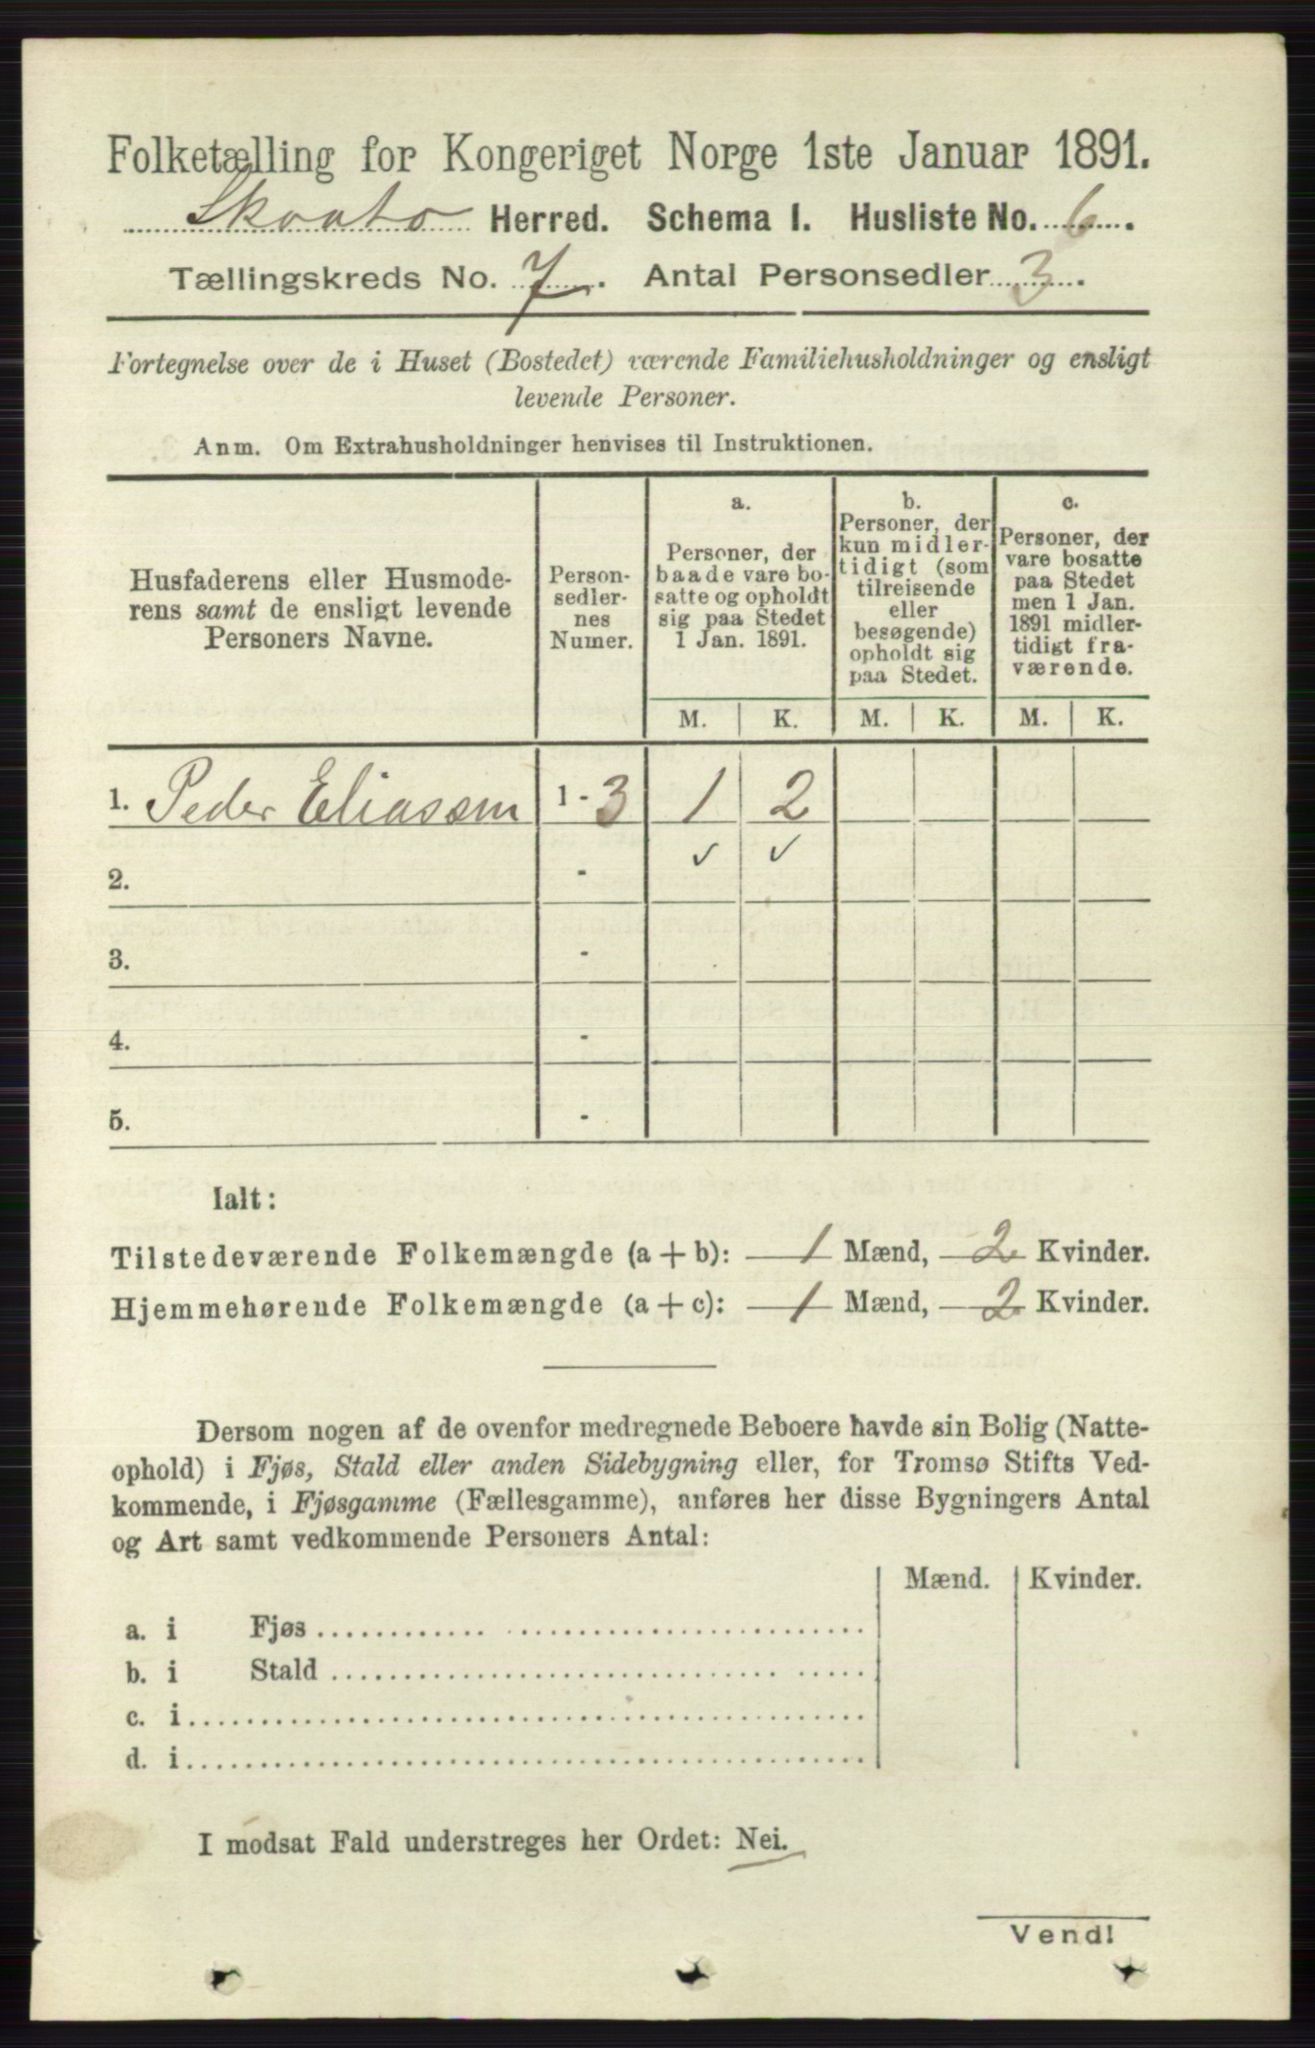 Folketælling for Kongeriget Norge 1ste Januar 1891.
Skaatø Herred. Schema I. Husliste No. 6.
Tællingskreds No. 7. Antal Personsedler 3.
Fortegnelse over de i Huset (Bostedet) værende Familiehusholdninger og ensligt
levende Personer.
Anm. Om Extrahusholdninger henvises til Instruktionen.
Husfaderens eller Husmode-
rens samt de ensligt levende
Personers Navne.
Person-
sedler-
nes
Numer.
a.
Personer, der
baade vare bo-
satte og opholdt
sig paa Stedet
1 Jan. 1891.
b.
Personer, der
kun midler-
tidigt (som
tilreisende
eller
besøgende)
opholdt sig
paa Stedet.
c.
Personer, der
vare bosatte
paa Stedet
men 1 Jan.
1891 midler-
tidigt fra-
værende.
M. K. M. K. M. K.
1. Peder Eliassen 1 - 3 1 2
2. - ✓ ✓
3. -
4. -
5. -
Ialt:
Tilstedeværende Folkemængde (a + b): 1 Mænd, 2 Kvinder.
Hjemmehørende Folkemængde (a + c): 1 Mænd, 2 Kvinder.
Dersom nogen af de ovenfor medregnede Beboere havde sin Bolig (Natte-
ophold) i Fjøs, Stald eller anden Sidebygning eller, for Tromsø Stifts Ved-
kommende, i Fjøsgamme (Fællesgamme), anføres her disse Bygningers Antal
og Art samt vedkommende Personers Antal:
Mænd. Kvinder.
a. i Fjøs
b. i Stald
c. i
d. i
I modsat Fald understreges her Ordet: Nei.
Vend!